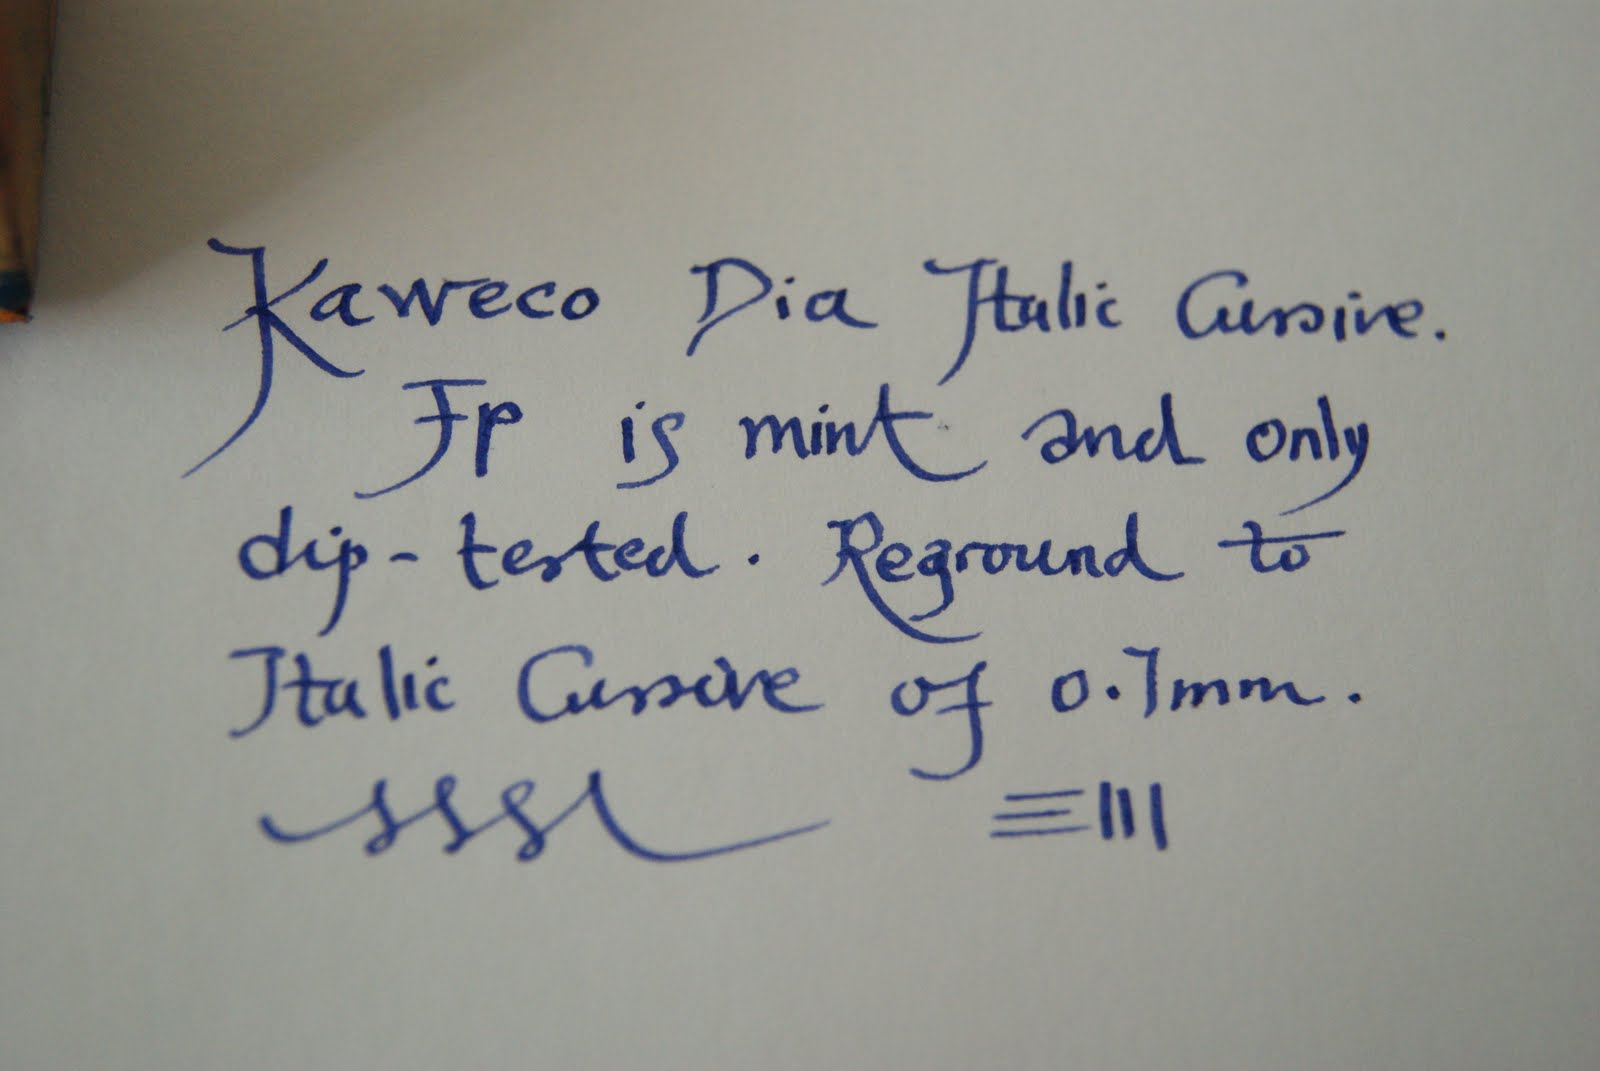 Kaweco Dia Italic Cursive.
Fp is mint and only
dip-tested. Reground to
Italic Cursive of 0.7mm.